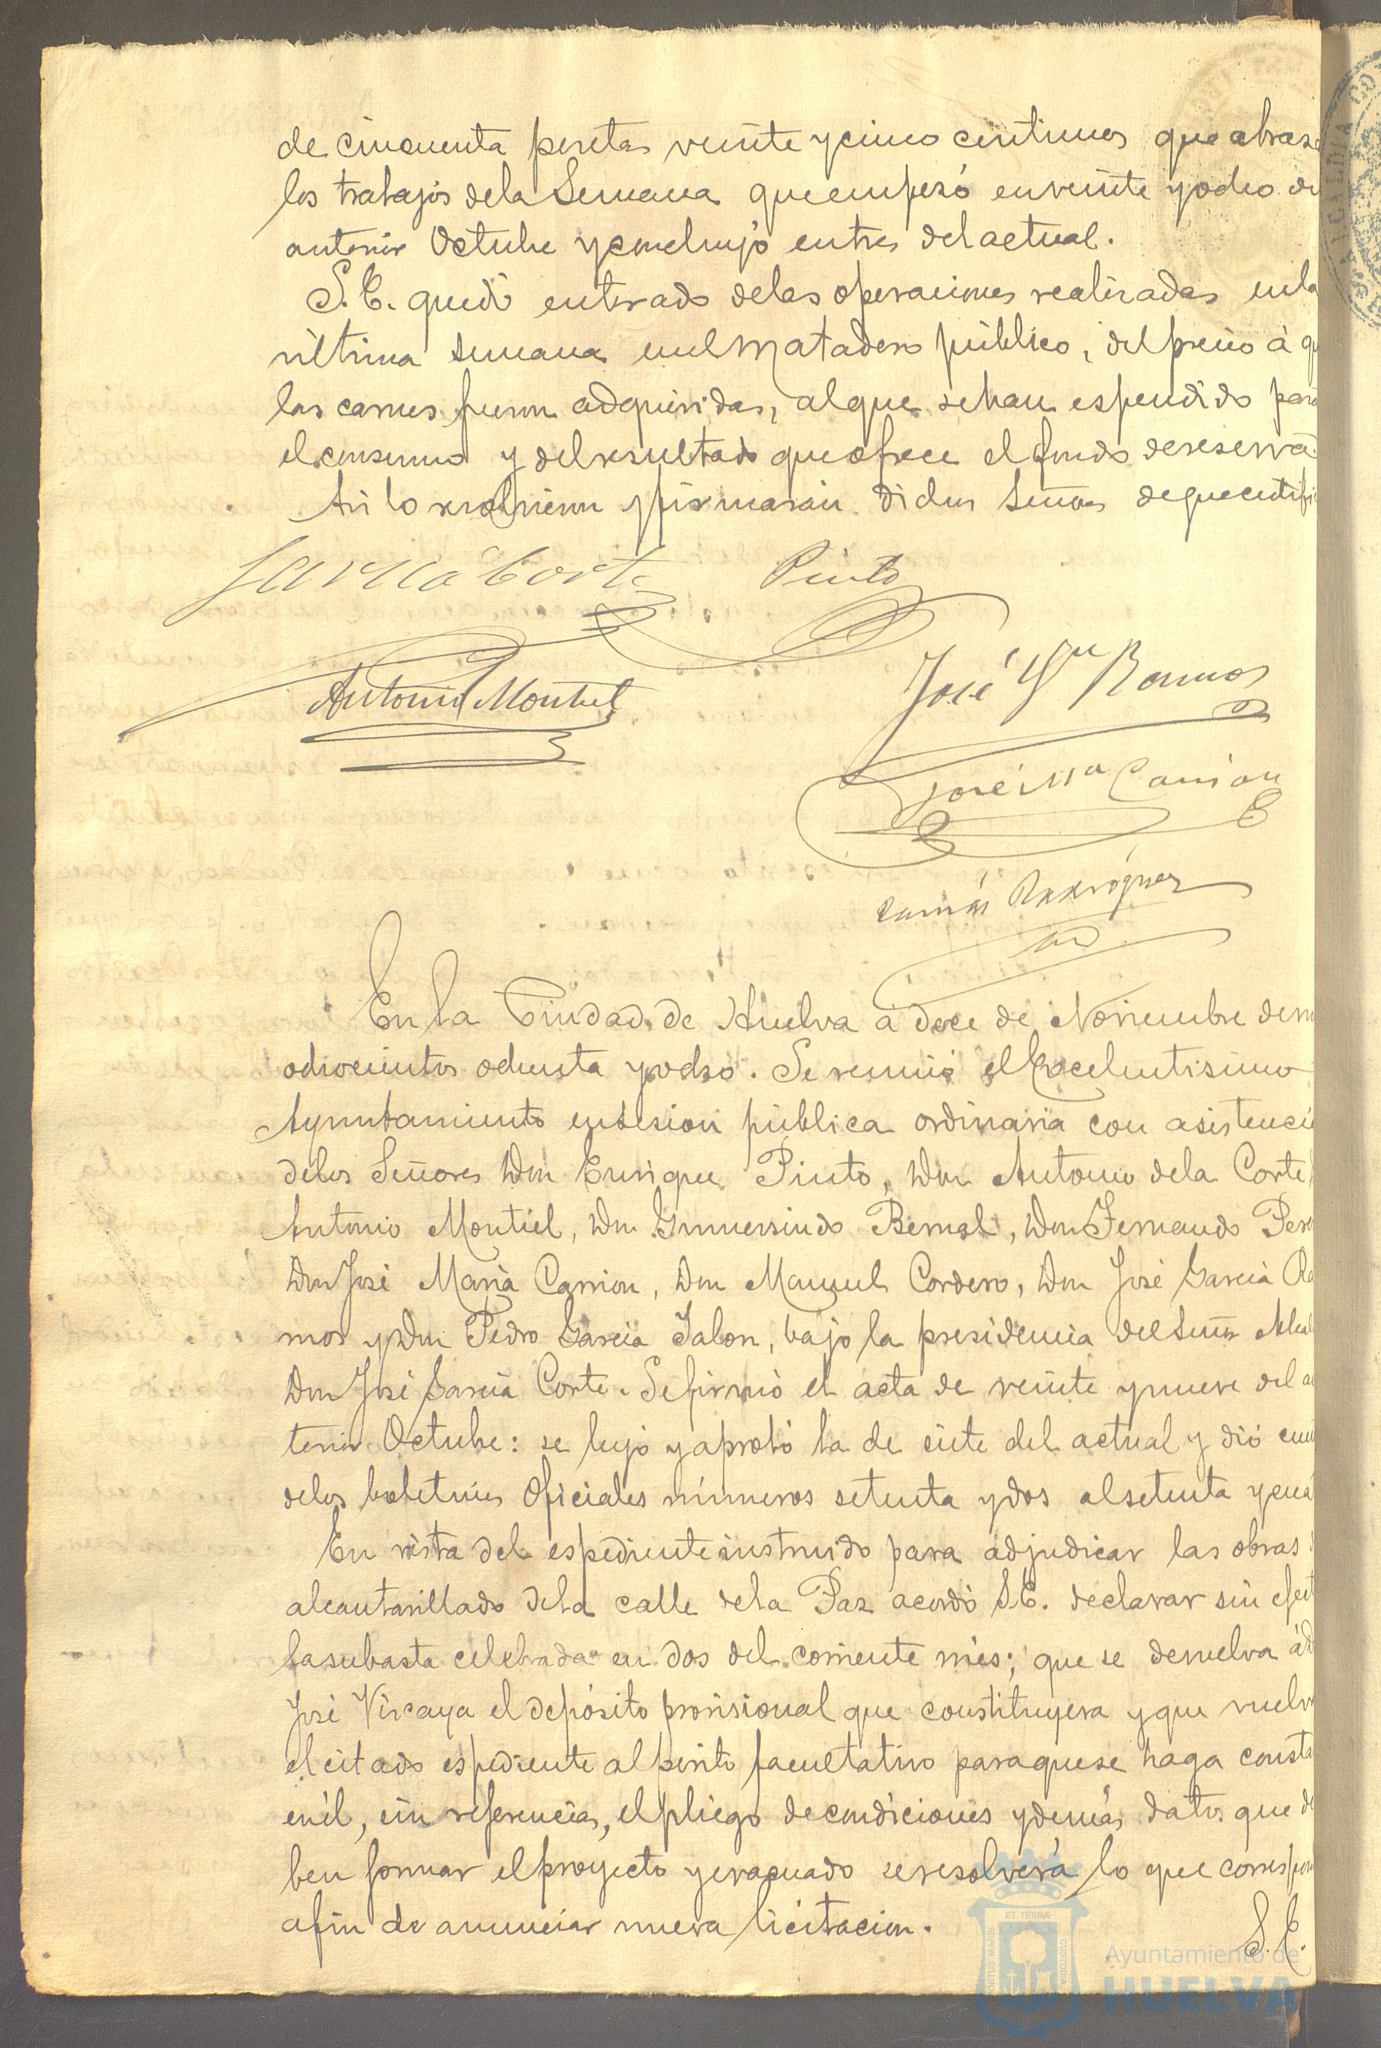 de cincuenta pesetas veinte y cinco centimos que abraza
los trabajos dela Semana que empezó en veinte y ocho del
anterior Octubre y concluyó en tres del actual.
S.E. quedó enterado delas operaciones realizadas en la
última semana enel Matadero público, del precio á q
las carnes fueron adquiridas, al que se han espendido para
el consumo y del resultado que ofrece el fondo de reserva.
Asi lo resolvieron y firmarán dichos Señores de que certifi
García Corte Pinto
Antonio Montiel José Gª Ramos
José Mª Carrion
Tomás Rodríguez
En la Ciudad de Huelva a doce de Noviembre de m
ochocientos ochenta y ocho. Se reunió el Excelentisimo
Ayuntamiento en sesion pública ordinaria con asistencia
delos Señores Don Enrique Pinto, Don Antonio dela Corte,
Antonio Montiel, Don Gumersindo Bernal, Don Fernando Per
Don José María Carrion, Don Manuel Cordero, Don José García Ra
mos y Don Pedro García Jalon, bajo la presidencia del Señor Alcal
Don José García Corte. Se firmó el acta de veinte y nueve del an
terior Octubre: se leyó y aprobó la de siete del actual y dió cuen
delos boletines Oficiales números setenta y dos al setenta y cua
En vista del espediente instruido para adjudicar las obras
alcantarillado dela calle dela Paz acordó S.E. declarar sin efect
la subasta celebrada en dos del corriente mes; que se devuelva á D
José Vizcaya el depósito provisional que constituyera y que vuelva
el citado espediente al perito facultativo para que se haga consta
en él, sin referencias, el pliego de condiciones y demás datos que de
ben formar el proyecto y evacuado se resolverá lo que correspon
afin de anunciar nueva licitacion.
S.E.
Ayuntamiento de
HUELVA